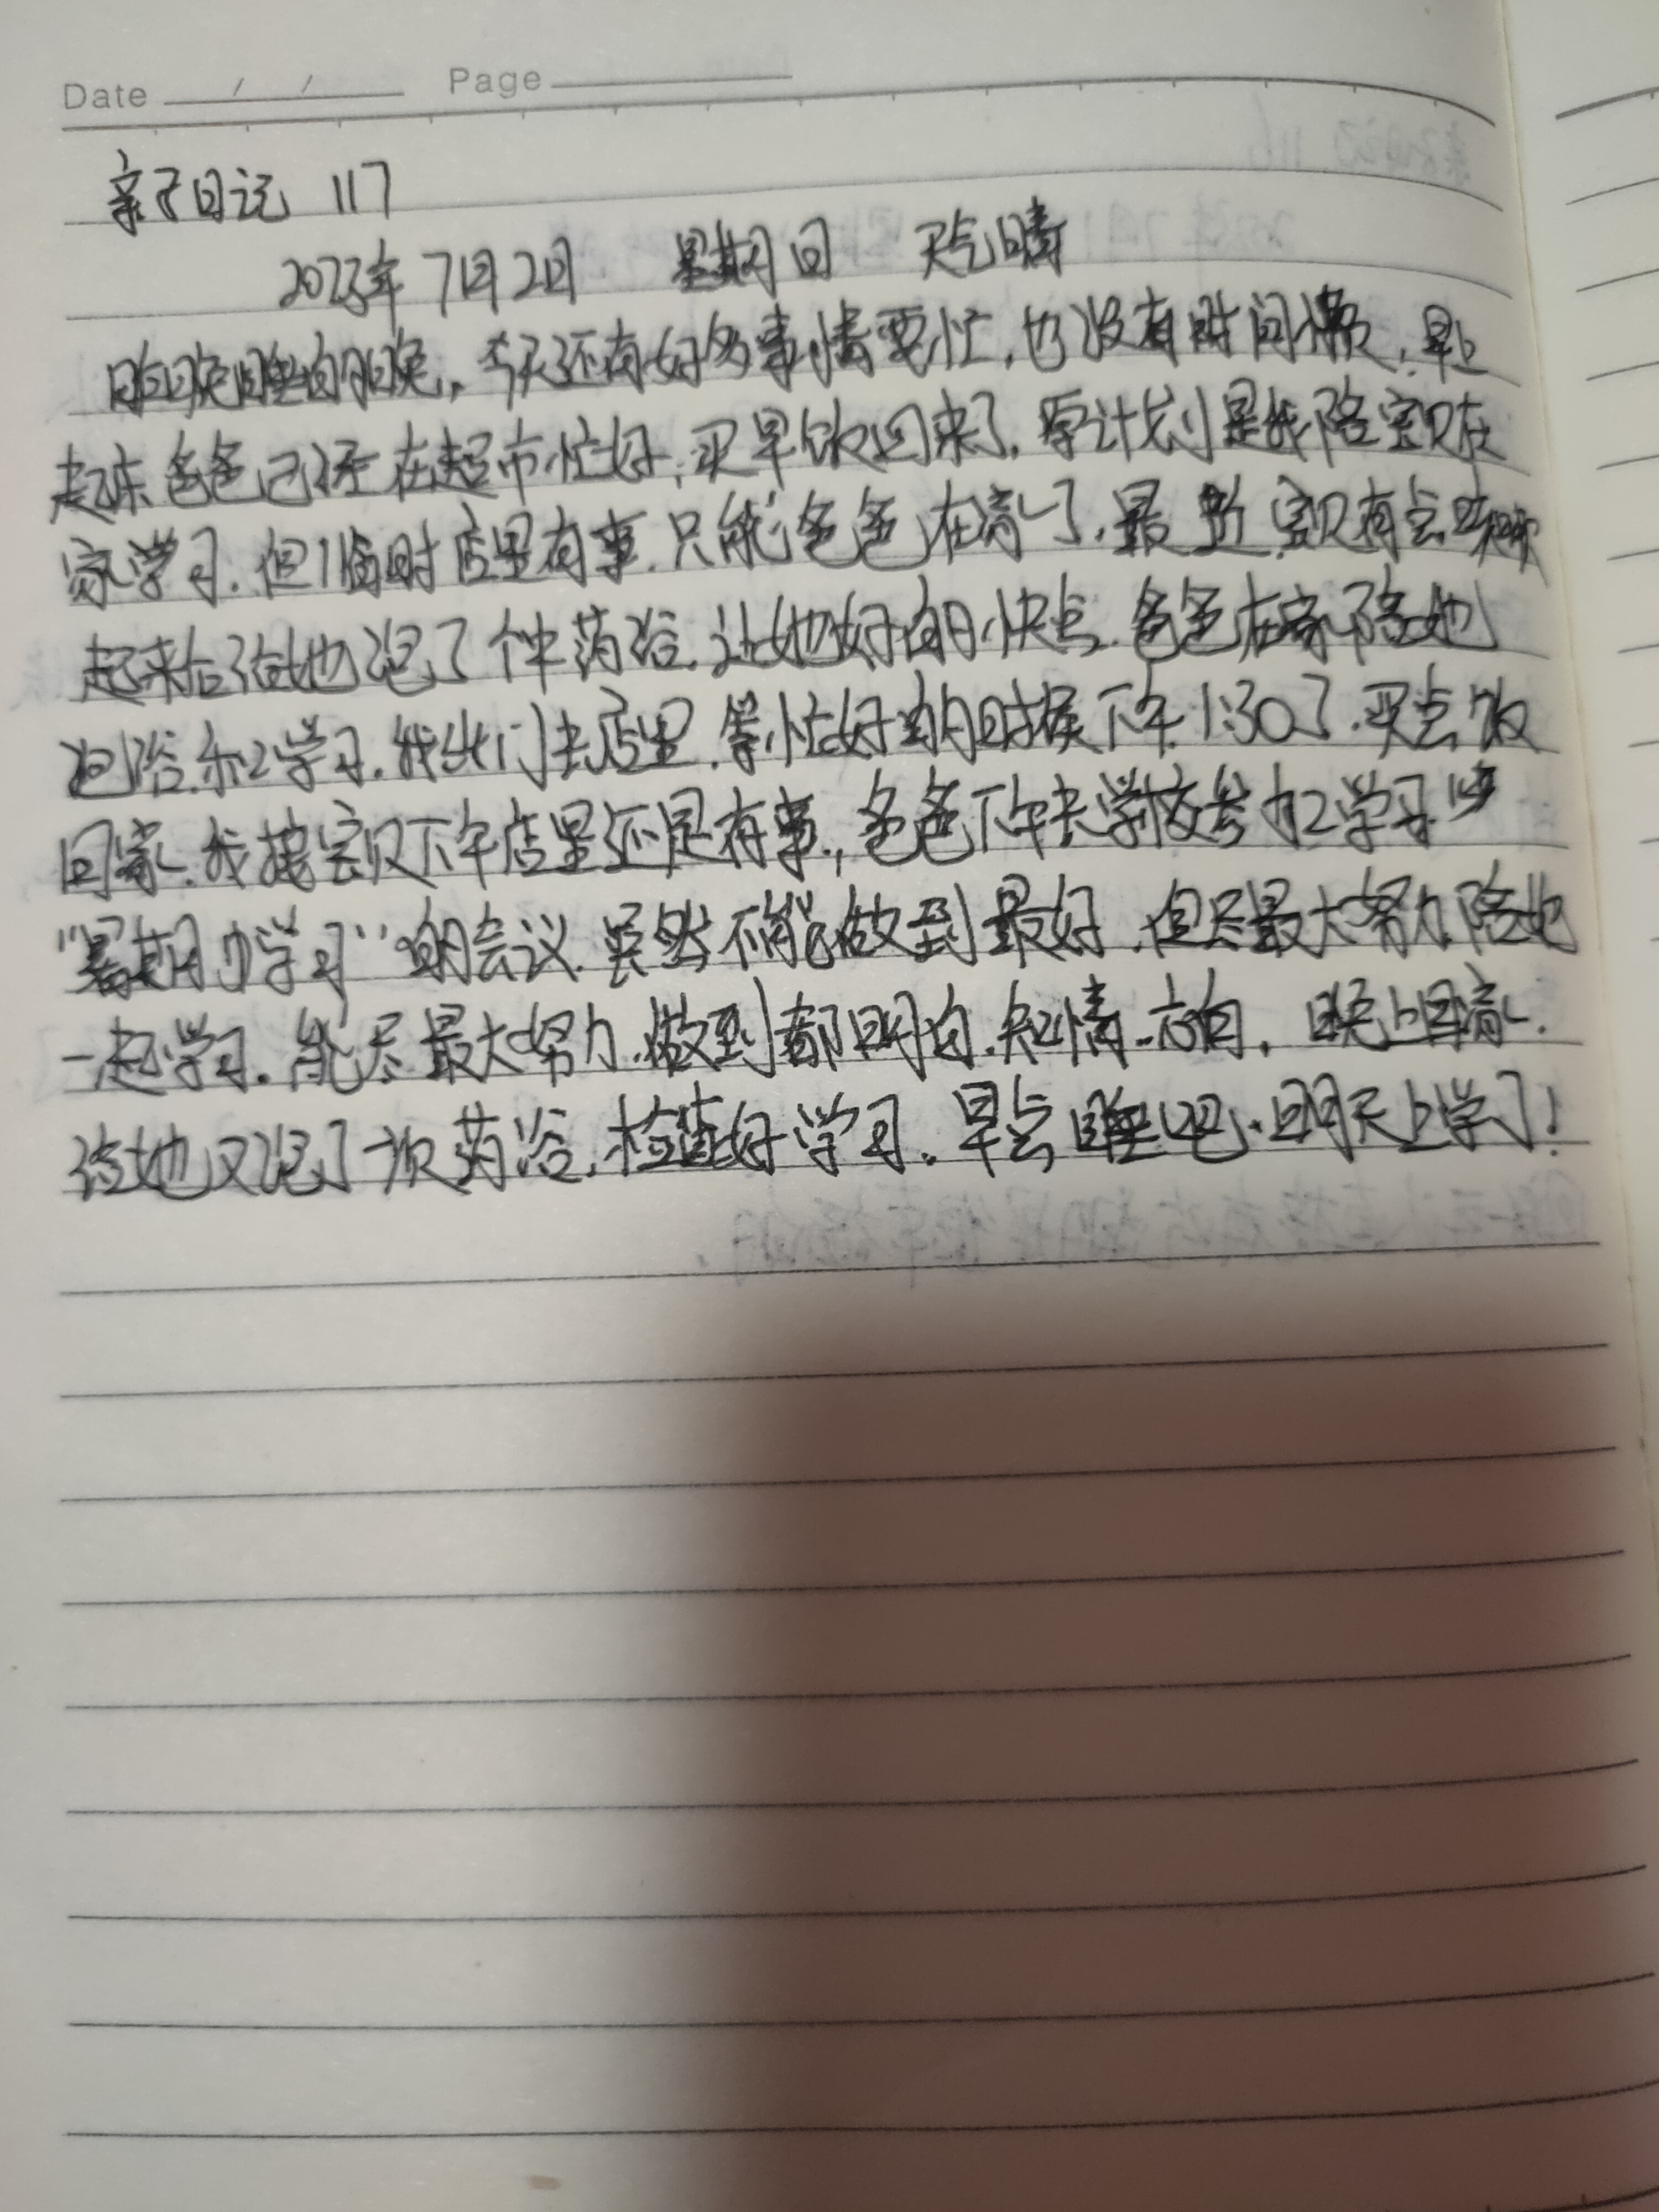 Date / / Page
亲子日记 117
2023年7月2日 星期日 天气晴
昨晚睡的很晚,今天还有好多事情要忙,也没有时间懒,早上
起床爸爸已经在超市忙好,买早饭回来了,原计划是我陪宝贝在
家学习.但临时店里有事.只能爸爸在家了,最近宝贝有点咳嗽
起来后给她泡了个中药浴,让她好的快点.爸爸在家陪她
泡浴和学习.我出门去店里.等忙好的时候下午1:30了.买点饭
回家.我接宝贝下午店里还是有事,爸爸下午去学校参加学习
"暑期学习"的会议.虽然不能做到最好.但尽最大努力陪她
一起学习.能尽最大努力.做到都明白.知情.方向,晚上回家.
给她又泡了一次药浴,检查好学习.早点睡吧.明天上学了!